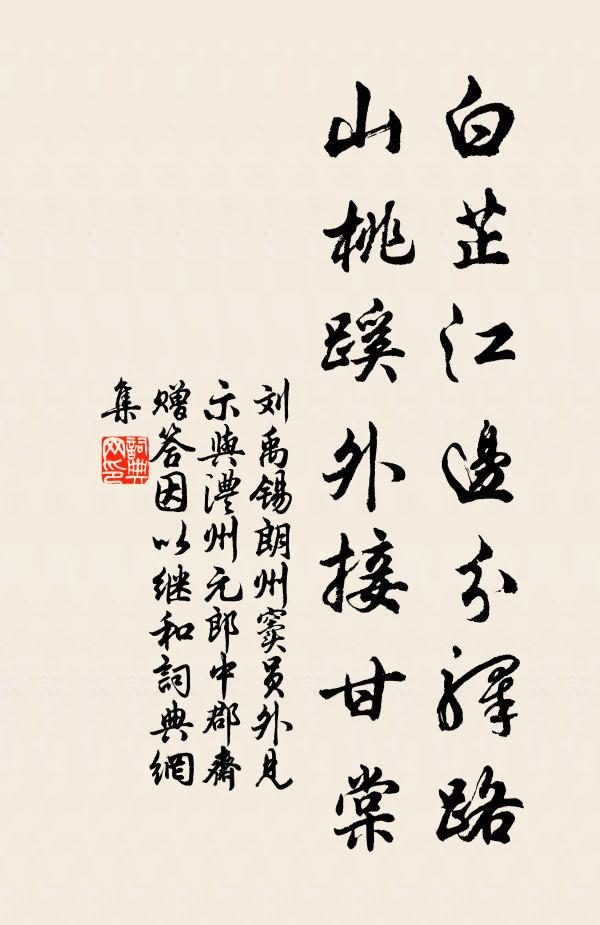 白芷江邊分驛路
山桃蹊外接甘棠
刘禹锡朗州窦员外见
示與澧州元郎中郡齋
赠答因以继和詞典網
集
詞典
网印